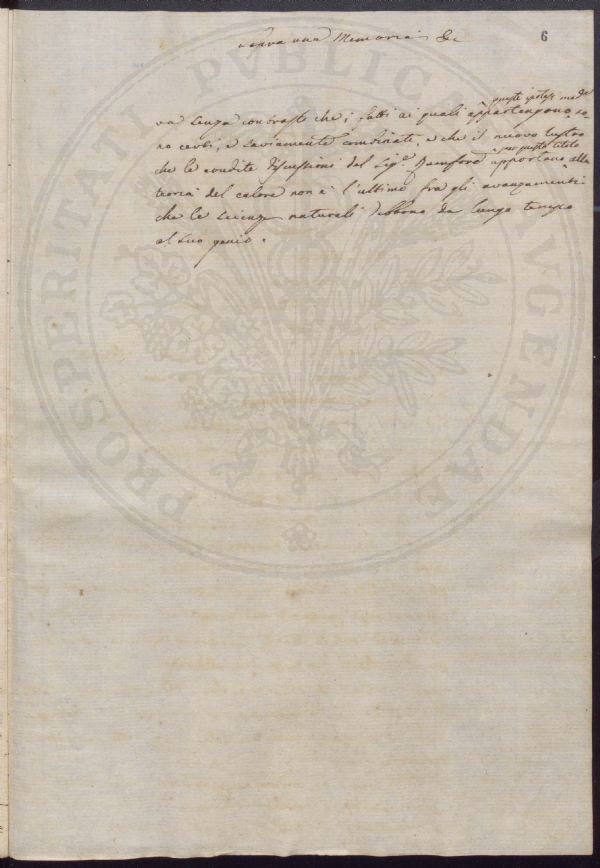 sopra una Memoria &c
6
queste ipotesi med.e
va senza contrasto che i fatti ai quali appartengono so-
no certi, e saviamente combinati, e che il nuovo lustro
per questo titolo
che le erudite discussioni del Sig.r Rumford apportano alla
teoria del calore non è l'ultimo fra gli avanzamenti
che le scienze naturali debbono da lungo tempo
al suo genio.
PROSPERITATI PVBLICAE AVGENDAE